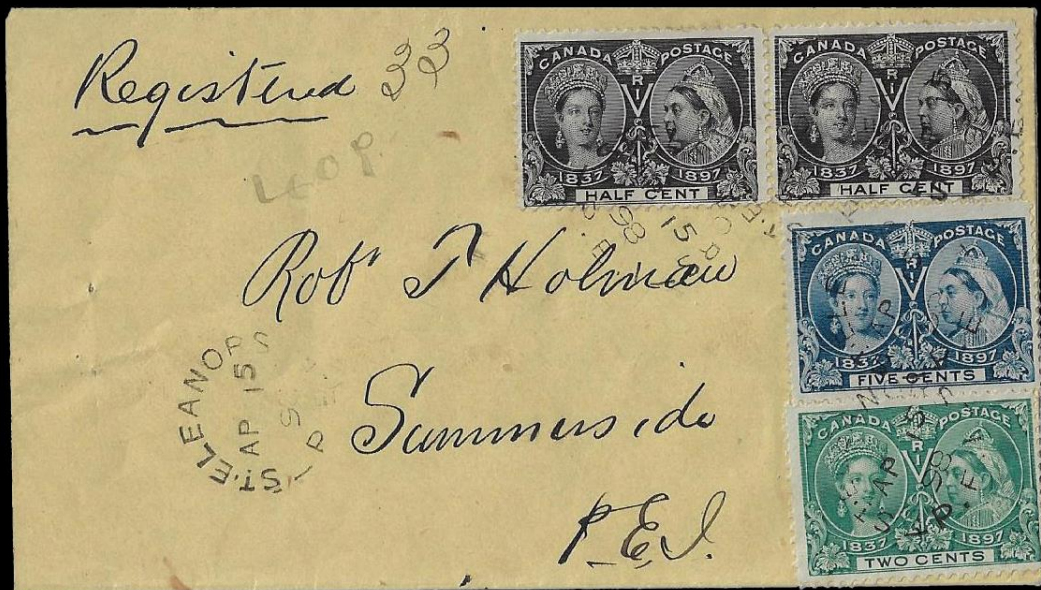 Registered 33
CANADA POSTAGE
V R I
1837 1897
HALF CENT
CANADA POSTAGE
V R I
1837 1897
HALF CENT
Robt T Holman
CANADA POSTAGE
V R I
1837 1897
FIVE CENTS
ST. ELEANORS
AP 15
98
P.E.I
Summerside
CANADA POSTAGE
V R I
1837 1897
TWO CENTS
P.E.I.